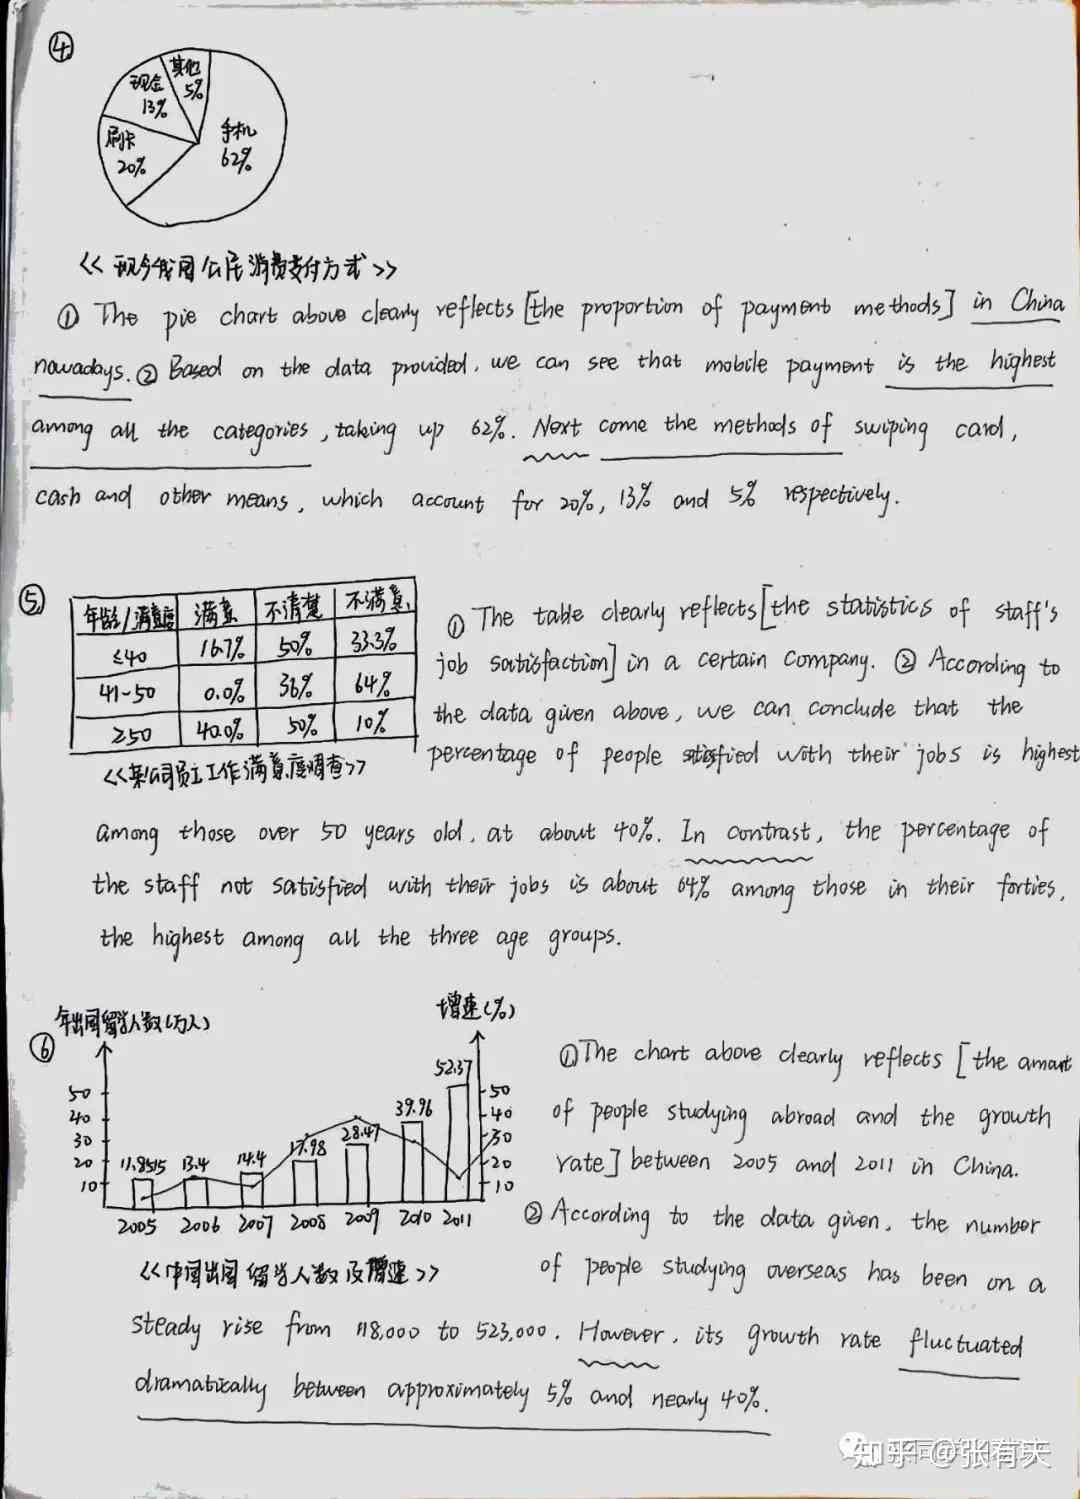 ④
其他
5%
现金
13%
刷卡
20%
手机
62%
<<现今我国公民消费支付方式>>
① The pie chart above clearly reflects [the proportion of payment methods] in China
nowadays. ② Based on the data provided, we can see that mobile payment is the highest
among all the categories, taking up 62%. Next come the methods of swiping card,
cash and other means, which account for 20%, 13% and 5% respectively.
⑤
年龄/满意度 满意 不清楚 不满意
≤40 16.7% 50% 33.3%
41-50 0.0% 36% 64%
≥50 40.0% 50% 10%
<<某公司员工工作满意度调查>>
① The table clearly reflects [the statistics of staff's
job satisfaction] in a certain company. ② According to
the data given above, we can conclude that the
percentage of people satisfied with their jobs is highest
among those over 50 years old, at about 40%. In contrast, the percentage of
the staff not satisfied with their jobs is about 64% among those in their forties,
the highest among all the three age groups.
⑥
年出国留学人数(万人)
增速(%)
50
40
30
20
10
11.8515 13.4 14.4 17.98 28.47 39.96 52.37
50
40
30
20
10
2005 2006 2007 2008 2009 2010 2011
<<中国出国留学人数及增速>>
① The chart above clearly reflects [the amount
of people studying abroad and the growth
rate] between 2005 and 2011 in China.
② According to the data given, the number
of people studying overseas has been on a
steady rise from 118,000 to 523,000. However, its growth rate fluctuated
dramatically between approximately 5% and nearly 40%.
知乎 @张有夫